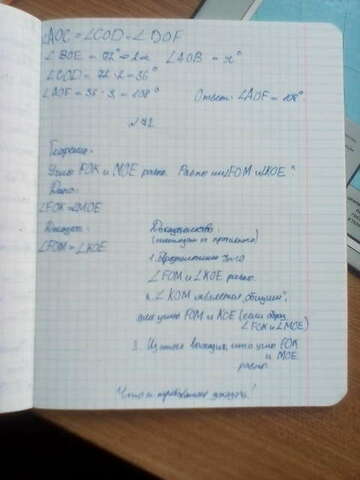 ∠AOC = ∠COD = ∠DOF
∠BOE = 72° = 2x ∠AOB = x°
∠COD = 72 : 2 = 36°
∠AOF = 36 · 3 = 108° Ответ: ∠AOF = 108°
Углы FOK и MOE равны. Равны ли ∠FOM и ∠KOE?
Дано:
∠FOK = ∠MOE
Доказать:
∠FOM = ∠KOE
Доказательство
1. что
∠FOM и ∠KOE равны.
2. ∠KOM является общим
для углов FOM и KOE (если
∠FOK и ∠MOE)
3. Из этого выходит, что углы FOK
и MOE
равны.
Что и требовалось доказать!